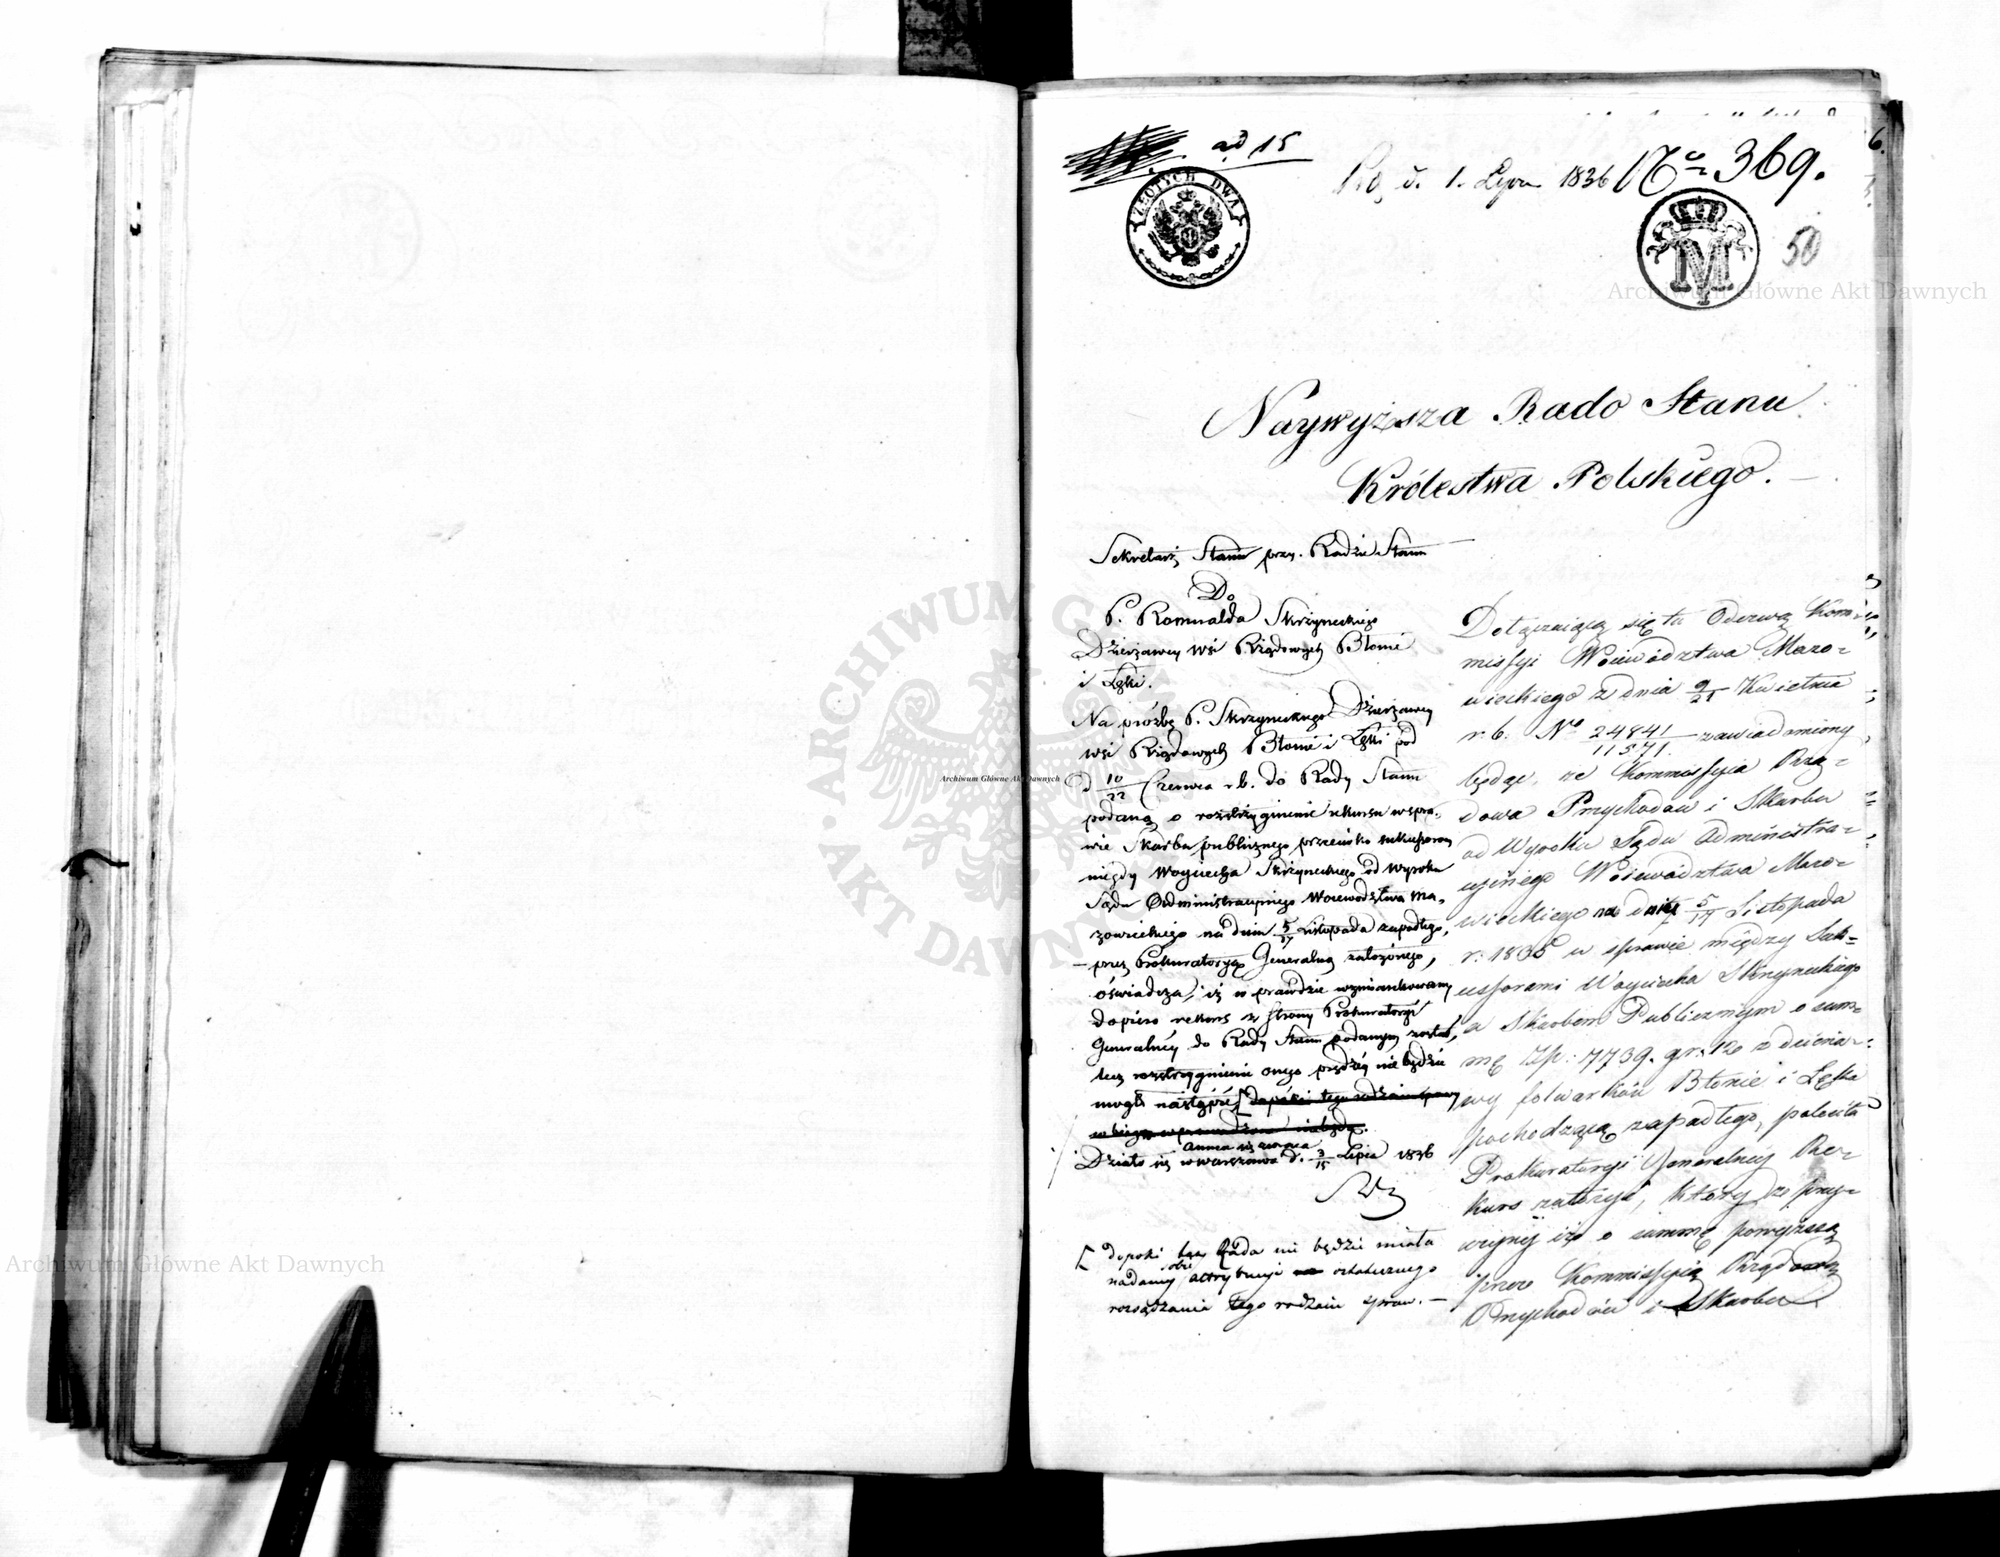 ad 15
d. 1. Lipca 1836 No 369.
6.
ZŁOTYCH DWA
M
50
Naywyższa Rado Stanu
Królestwa Polskiego. —
Sekretarz Stanu przy Radzie Stanu
Do
P. Romualda Skrzyneckiego
Dzierżawcy wsi Rządowych Błonie
i Łęki.
Na prózbę P. Skrzyneckiego Dzierżawcy
wsi Rządowych Błonie i Łęki pod
d 10/22 Czerwca r. b. do Rady Stanu
podaną o rozstrzygnienie rekursu w spra-
wie Skarbu publicznego przeciwko sukcessorom
niegdy Woyciecha Skrzyneckiego od wyroku
Sądu Administracyinego Województwa Ma-
zowieckiego na dniu 5/17 Listopada zapadłego,
— przez Prokuratoryą Generalną założonego,
oświadcza, iż w prawdzie wzmiankowany
dopiero rekurs z strony Prokuratoryi
Generalney do Rady Stanu podanym został,
lecz rozstrzygnienie onego prędzey nie będzie
mogło nastąpić [dopóki tego rodzaiu sprawy
Annexa się zwraca
Działo się w Warszawie d. 3/15 Lipca 1836
[ dopóki taż Rada nie będzie miała
nadaney sobie attrybucyi ostatecznego
rozsądzania tego rodzaiu spraw. —
Dołączaiącą się tu Odezwą Kom-
missyi Województwa Mazo-
wieckiego z dnia 9/21 Kwietnia
r. b. No 24841/11571 zawiadomiony
będąc, że Kommissyia Rzą-
dowa Przychodów i Skarbu
od Wyroku Sądu Administra-
cyinego Województwa Mazo-
wieckiego na dniu 5/17 Listopada
r. 1835 w sprawie między Suk-
cessorami Woyciecha Skrzyneckiego
a Skarbem Publicznym o sum-
mę Złp: 7739. gr. 12 z dzierża-
wy folwarków Błonie i Łęka
pochodzącą zapadłego, poleciła
Prokuratoryi Generalney Re-
kurs założyć, który ze przy-
czyny iż o summę powyższą
przez Kommissyią Rządową
Przychodów i Skarbu
Archiwum Główne Akt Dawnych
Archiwum Główne Akt Dawnych
Archiwum Główne Akt Dawnych
ARCHIWUM GŁÓWNE AKT DAWNYCH